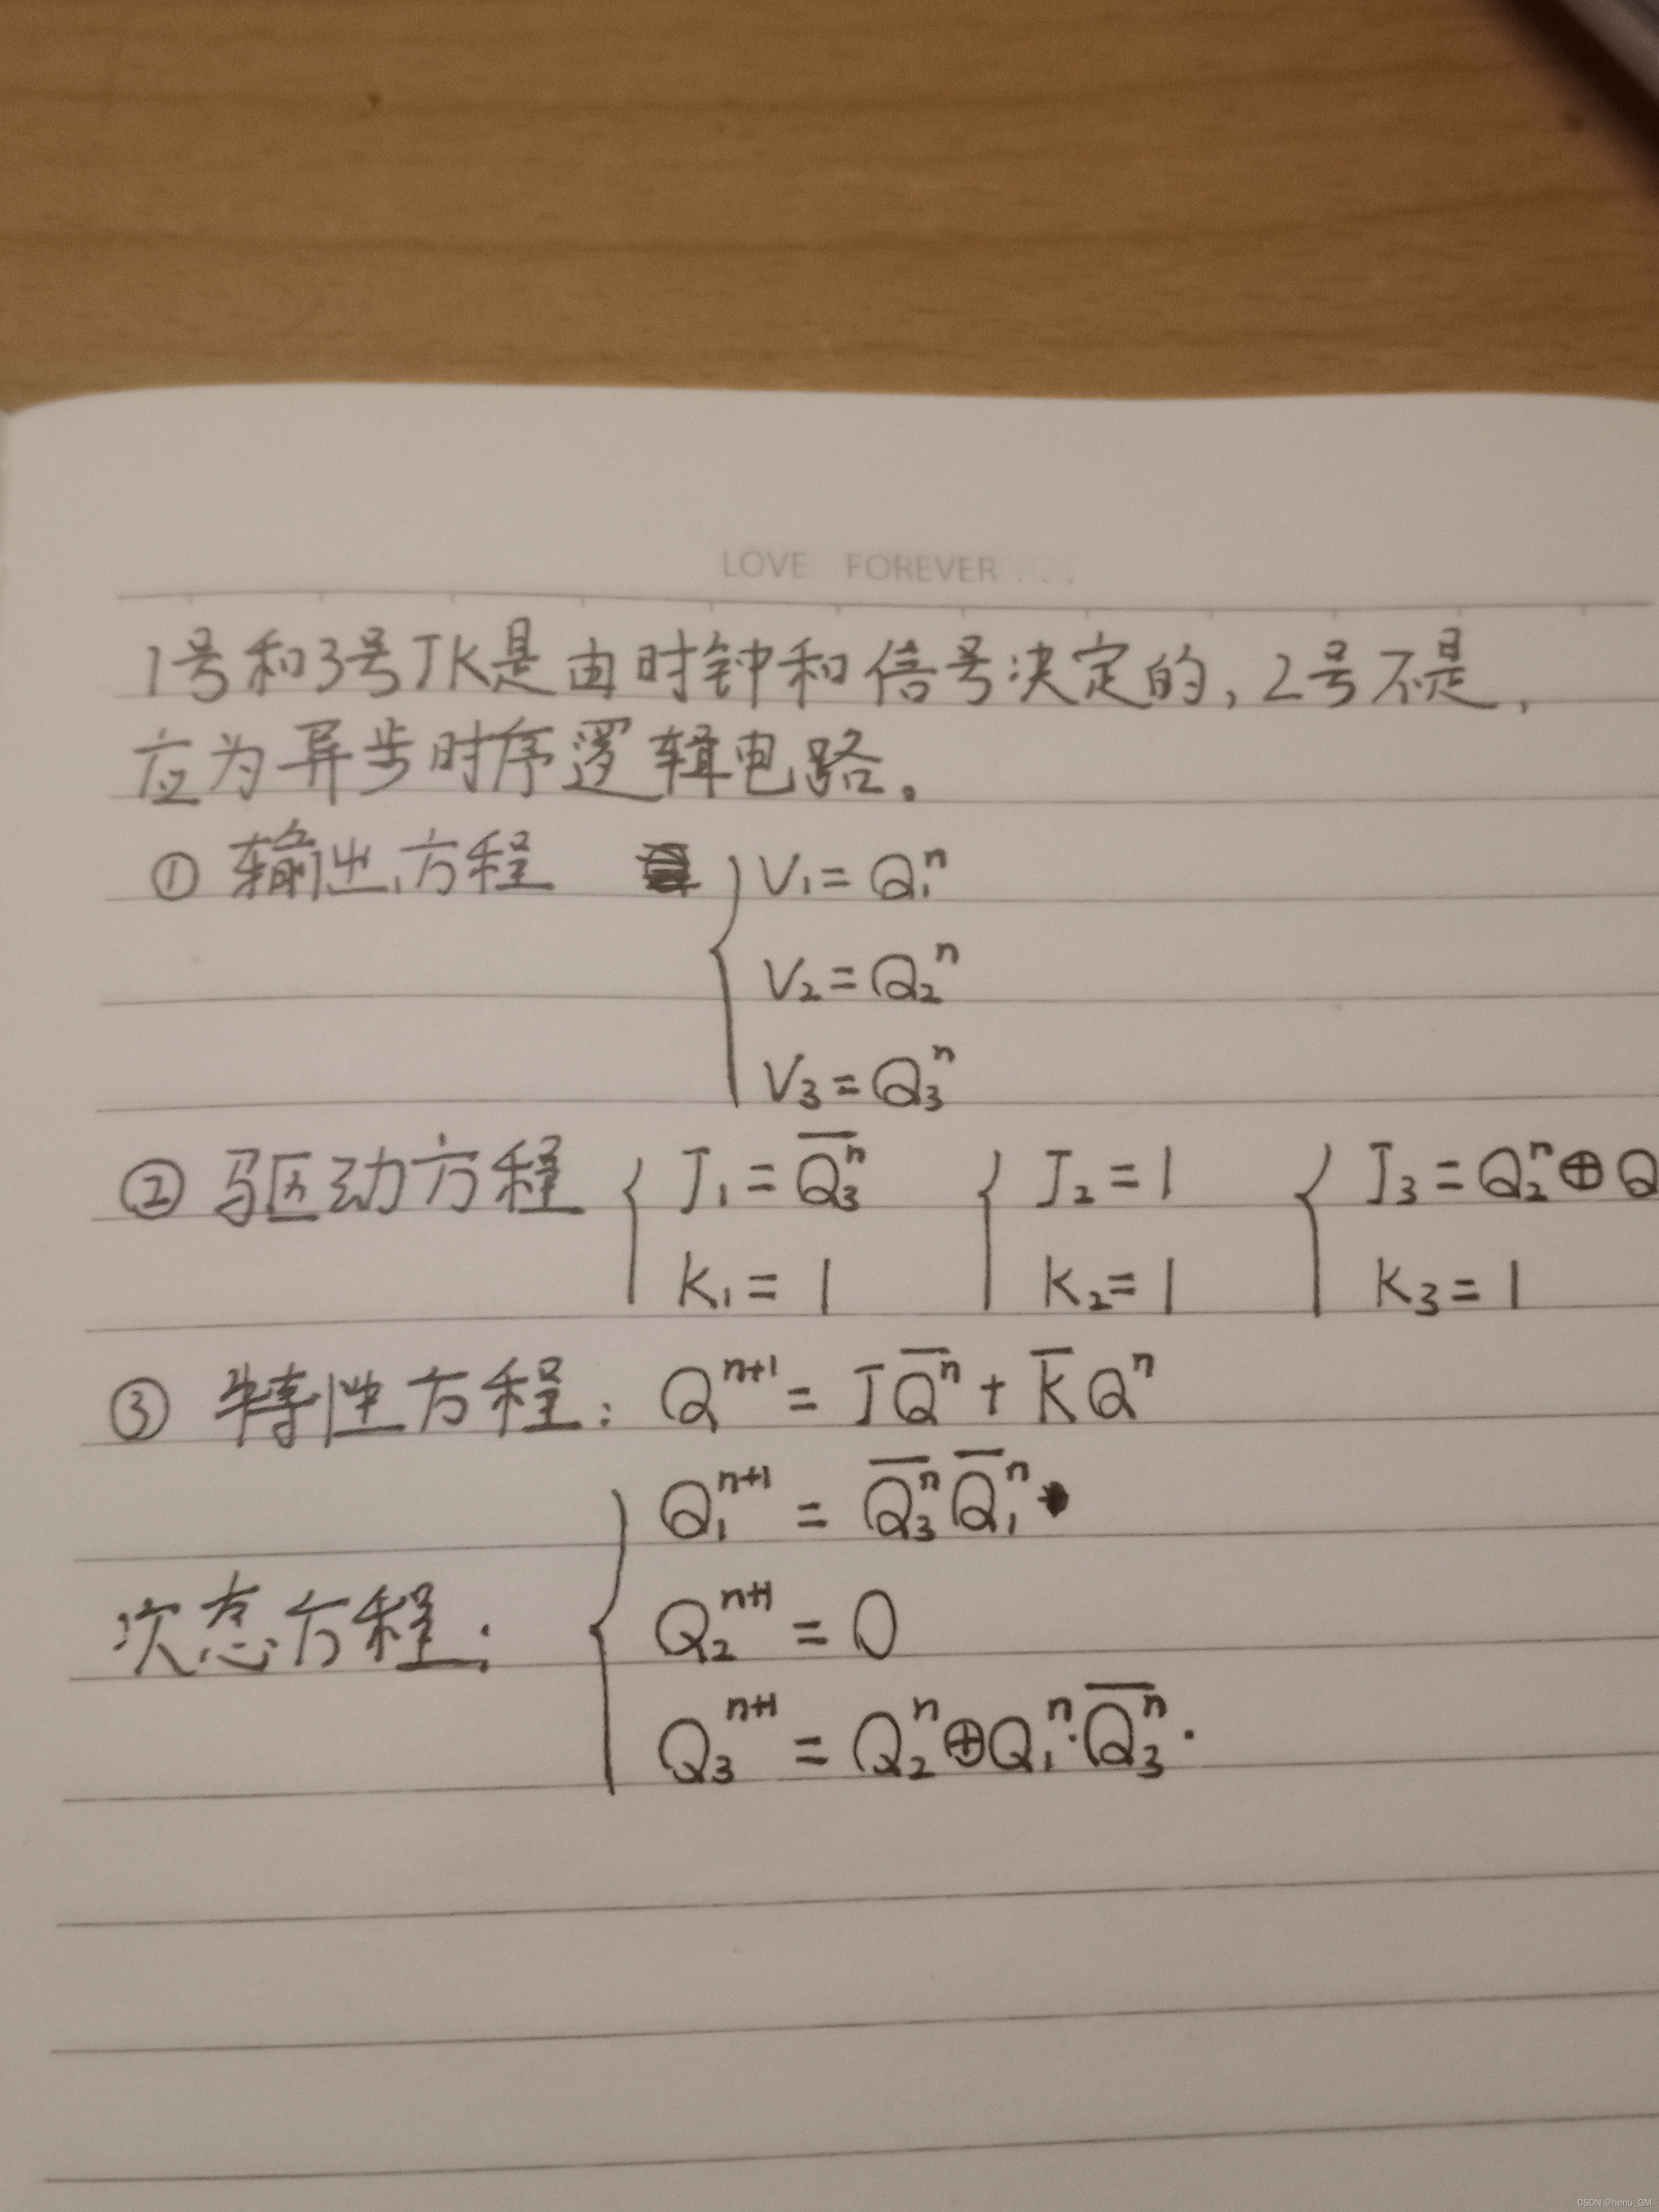 LOVE FOREVER
1号和3号JK是由时钟和信号决定的,2号不是,
应为异步时序逻辑电路。
① 输出方程 { V₁ = Q₁ⁿ
V₂ = Q₂ⁿ
V₃ = Q₃ⁿ
② 驱动方程 { J₁ = \overline{Q₃ⁿ} { J₂ = 1 { J₃ = Q₂ⁿ ⊕ Q
K₁ = 1 K₂ = 1 K₃ = 1
③ 特性方程: Qⁿ⁺¹ = J\overline{Qⁿ} + \overline{K}Qⁿ
Q₁ⁿ⁺¹ = \overline{Q₃ⁿ} \overline{Q₁}ⁿ
次态方程: { Q₂ⁿ⁺¹ = 0
Q₃ⁿ⁺¹ = Q₂ⁿ ⊕ Q₁ⁿ · \overline{Q₃ⁿ} .
CSDN @henu_GM